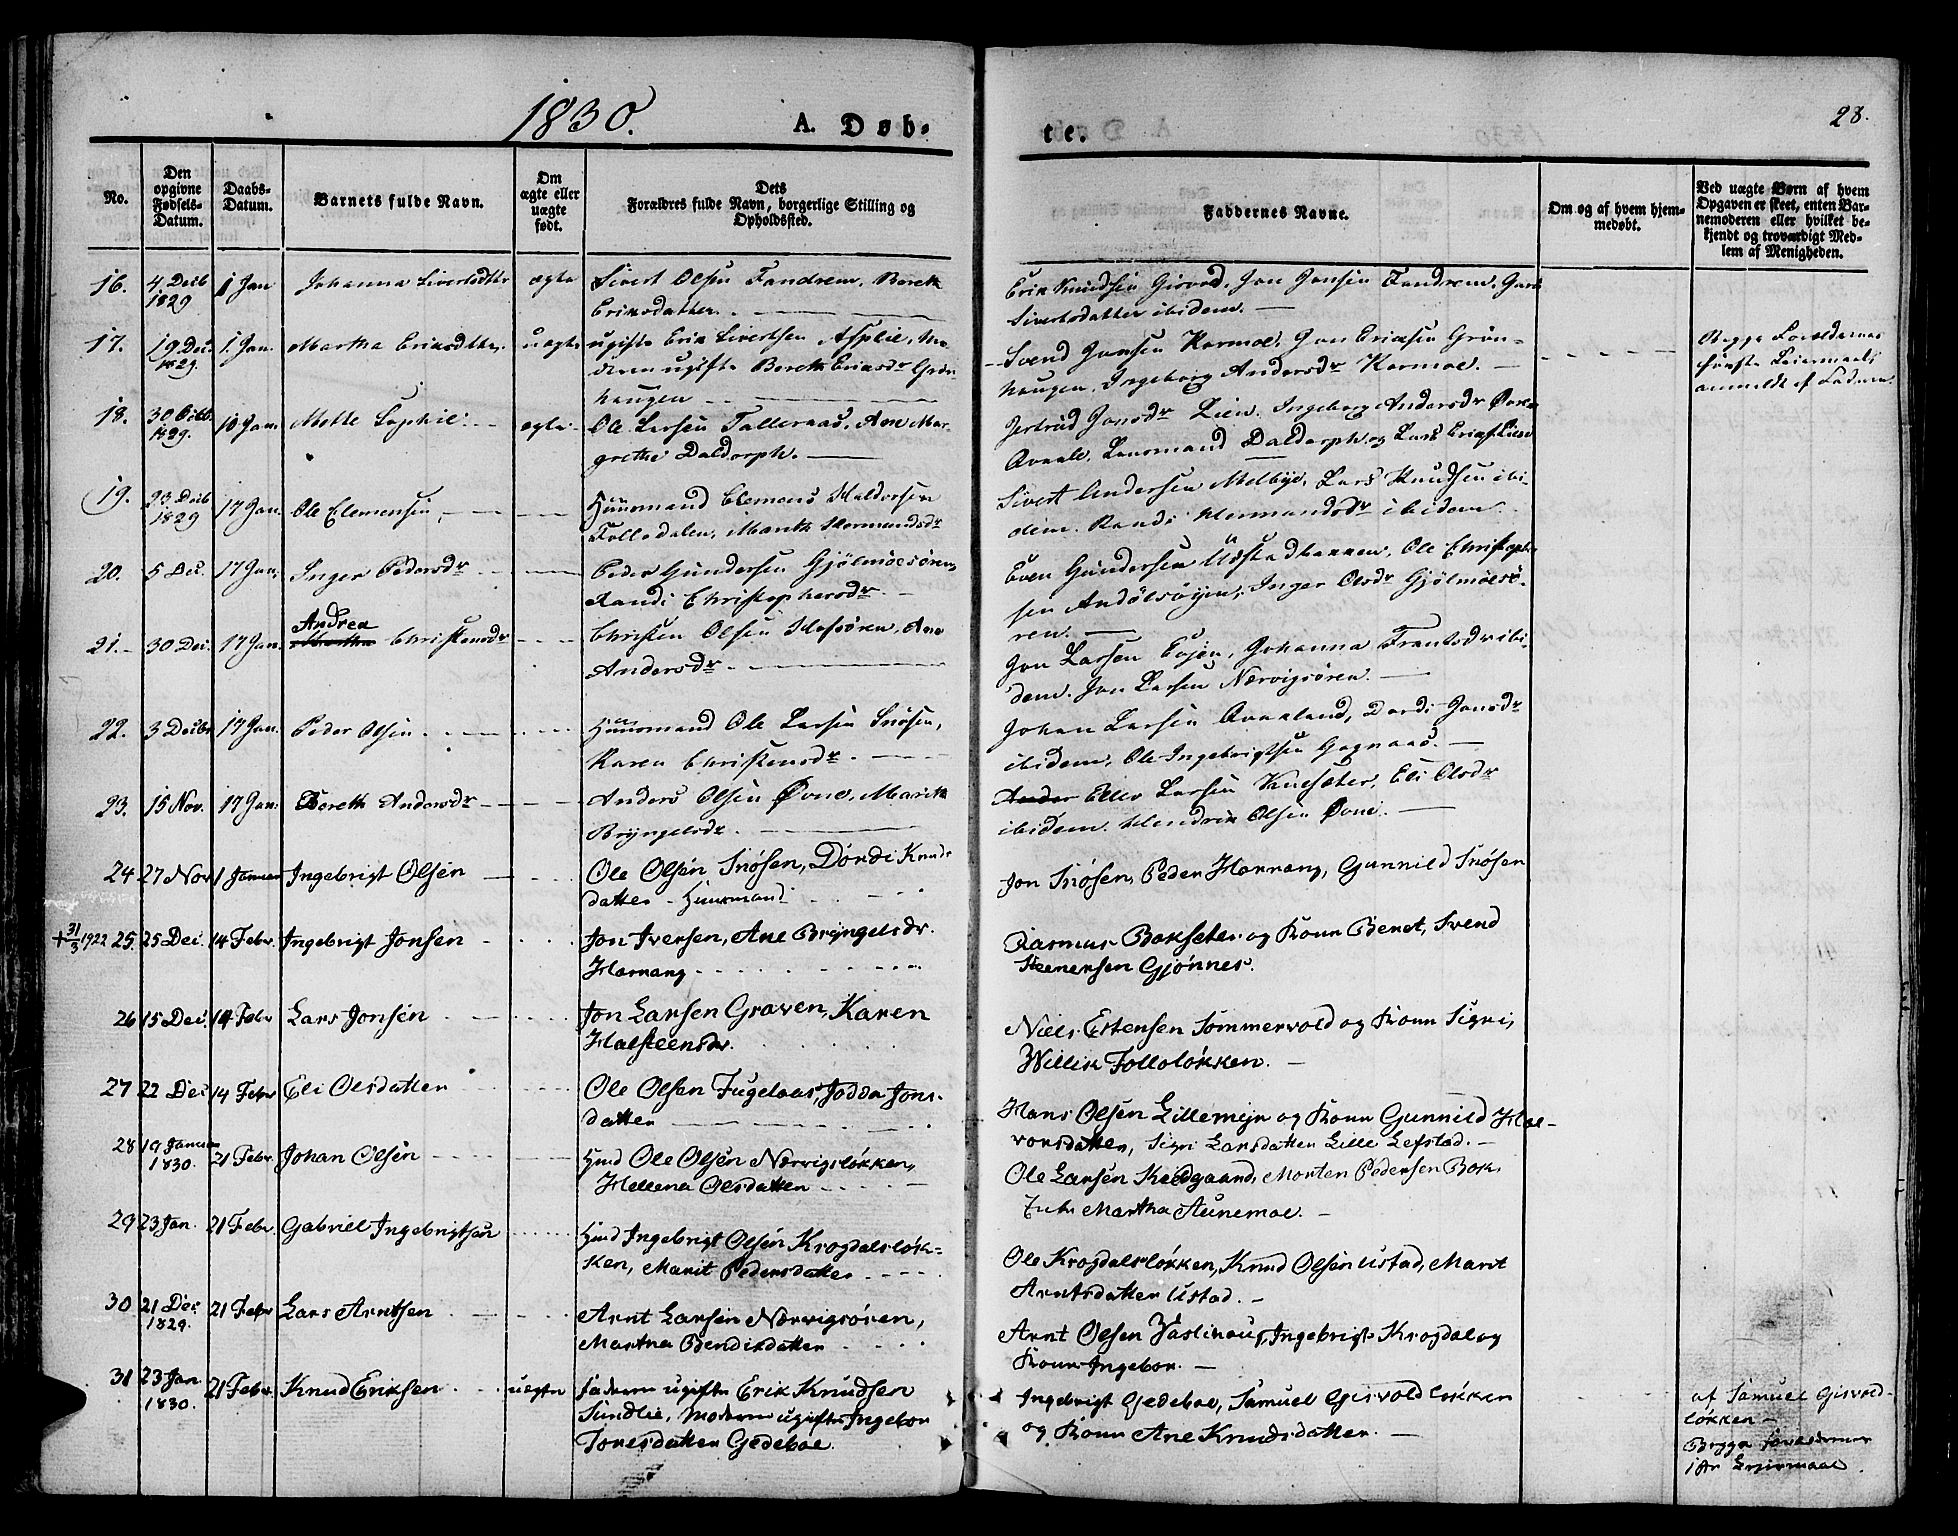 1830.
A. Døb-
te.
28.
No.
Den opgivne Fødsels-Datum.
Daabs-Datum.
Barnets fulde Navn.
Om ægte eller uægte født.
Dets Forældres fulde Navn, borgerlige Stilling og Opholdssted.
Faddernes Navne.
Om og af hvem hjem-
medøbt.
Ved uægte Børn af hvem
Opgaven er skeet, enten Bar-
nemoderen eller hvilket be-
kjendt og troværdigt Med-
lem af Menigheden.
16. 4 Decb 1829 1 Jan Johanna Sivertsdtter ægte Sivert Olsen Fandrem, Bereth
Eriksdatter.
Erik Knudsen Gisvod, Jon Jonsen Fandrem,
Sivertsdatter ibidem.
17. 19 Dec. 1829. 1 Jan. Martha Eriksdtter uægte ugifte Erik Sivertsen Asplie, Mo-
deren ugifte Bereth Eriksdr Grön-
haugen
Svend Jonsen Kormoe, Jon Ericksen Grön-
haugen, Ingeborg Andersdr Kormoe.
Begge Forældrenes
første Leiermaal
anmeldt af Faderen.
18. 30 Octb. 1829. 10 Jan. Mette Sophie: ægte Ole Larsen Talleraas, Ane Mar-
grethe Daldorph.
Jertrud Jonsdr Lien, Ingeborg Andersdr
Lensmand Daldorph og Lars
19. 23 Decb 1829 17 Jan. Ole Clemensen, Huusmand Clemens Haldorsen
Follodalen, Marith Hermandsdr
Sivert Andersen Melbye, Lars Knudsen ibi-
dem. Randi Hermandsdr ibidem.
20. 5 Dec. 17 Jan. Inger Pedersdr Peder Gundersen Gjölmöesören,
Randi Christophersdr.
Even Gundersen Ustadbakken, Ole Christoph-
sen Andölsöyen, Inger Olsdr Gjölmöesö-
ren.
21. 30 Dec. 17 Jan. Andrea
Martha Christensdr Christen Olsen Hofsören, Ane
Andersdr.
Jon Larsen Evjen, Johanna Frantsdr ibi-
dem. Jon Larsen Nærvigsören.
22. 3 Decbr 17 Jan. Peder Olsen Huusmand Ole Larsen Snösen,
Karen Christensdr.
Johan Larsen Avaaland, Dordi Jonsdr
ibidem, Ole Ingebrigtsen Gagnaas.
23. 15 Nov. 17 Jan. Bereth Andersdr Anders Olsen Övne, Marith
Brÿngelsdr.
Ander Eller Larsen Vansæter, Eli Olsdr
ibidem. Hendrik Olsen Övne.
24 27 Nov 1 Januar Ingebrigt Olsen Ole Olsen Snösen, Dordi Knuds
datter - Huusmand
Jon Snösen, Peder Harrang, Gunnild Snösen
+31/3 1922 25. 25 Dec. 14 Febr. Ingebrigt Jonsen Jon Iversen, Ane Brÿngelsdr.
Harrang
Rasmus Bakseter og Kone Beret, Svend
Steenersen Gjönnes.
26 15 Dec. 14 Febr Lars Jonsen Jon Larsen Graven, Karen
Halsteensdr.
Niels Estensen Sommervold og Kone Sigri,
Willik Follolökken.
27 22 Dec 14 Febr Eli Olsdatter Ole Olsen Fugelaas, Jodda Jons-
datter
Hans Olsen Lillemejn og Kone Gunnild Hal-
vorsdatter, Sigri Larsdatter Lille Lefstad.
28 19 Januar 1830. 21 Febr. Johan Olsen Huud Ole Olsen Nærvigslökken,
Hellena Olsdatter
Ole Larsen Kedgaard, Morten Pedersen Bak.
Enke Martha Aunemoe.
29 23 Jan. 21 Febr. Gabriel Ingebrigtsøn Huud Ingebrigt Olsen Krogdalslök-
ken, Marit Pedersdatter
Ole Krogdalslökken, Knud Olsen Ustad, Marit
Arntsdatter Ustad.
30 21 Dec 1829. 21 Febr Lars Arntsen Arnt Larsen Nærvigsören,
Martha Bendisdatter
Arnt Olsen Vaslihaug, Ingebrigt Krogdal og
Kone Ingebor.
31 23 Jan 1830. 21 Febr. Knud Eriksen uægte Faderen ugifte Erik Knudsen
Sundlie, Moderen ugifte Ingebor
Toresdatter Gedeboe.
Ingebrigt Gedeboe, Samuel Gisvoldlökken
og Kone Ane Knudsdatter.
af Samuel Gisvold-
lökken
Begge Forældrenes
1ste Leiermaal